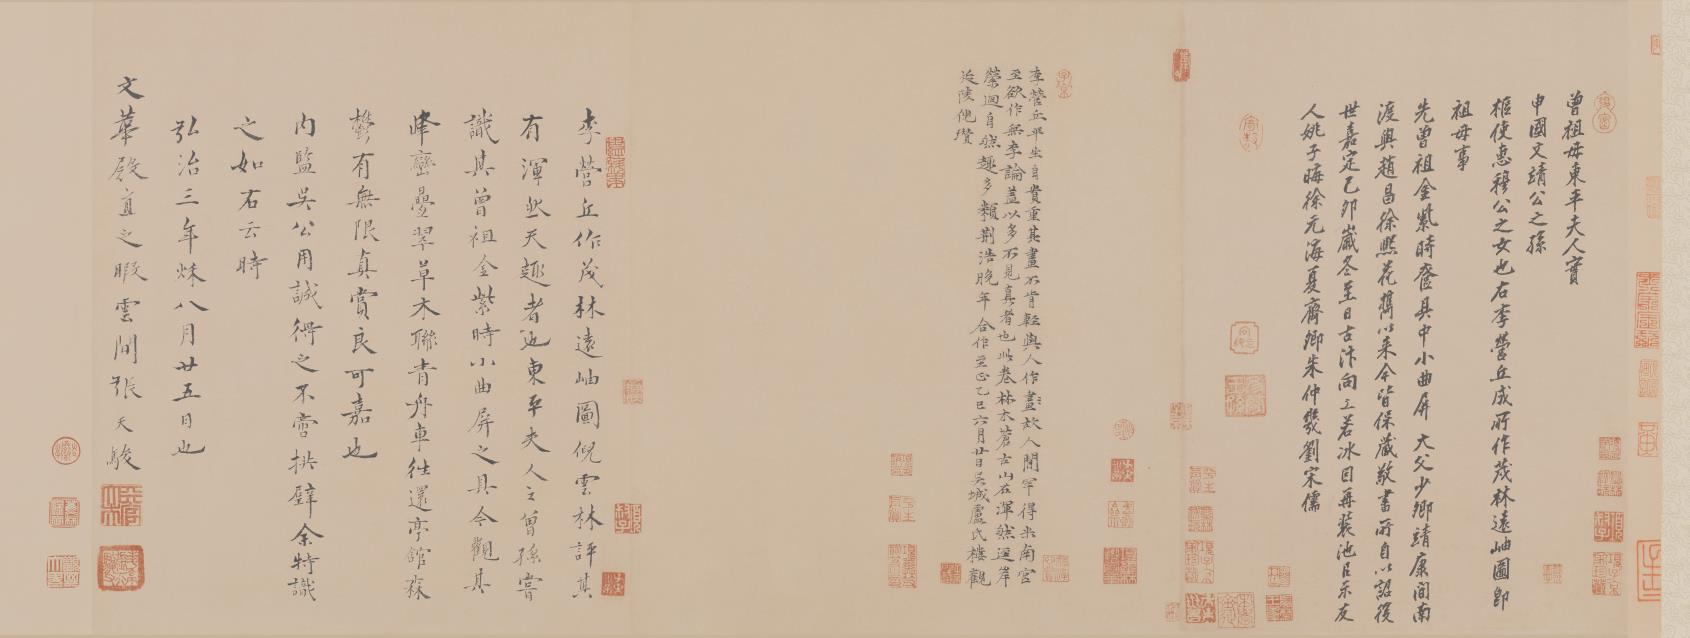 曾祖母東平夫人寶
申國文靖公之孫
樞使惠穆公之女也右李營丘成所作茂林遠岫圖即
祖母事
先曾祖金紫時奩具中小曲屏大父少卿靖康間南
渡與趙昌徐熙花擕以來今皆保藏敬書所自以詔後
世嘉定乙卯歲冬至日古汴向水若冰因再裝池呈示友
人姚子晦徐元海夏齋卿朱仲幾劉宋儒
李營丘平生自貴重其畫不肯輕與人作畫故人間罕得米南宮
至欲作無李論蓋以多不見真者也此卷林木蒼古山石渾然逕岸
縈迴自然趣多類荊浩晚年合作至正乙巳六月廿日吳城盧氏樓觀
延陵倪瓚
李營丘作茂林遠岫圖倪雲林評其
有渾然天趣者也東平夫人之曾孫嘗
識其曾祖金紫時小曲屏之具今觀其
峰巒疊翠草木聯青舟車往還亭館森
鬱有無限真賞良可嘉也
內監吳公用誠得之不啻拱璧余特識
之如右云時
弘治三年秋八月廿五日也
文華殿直之暇雲間張天駿